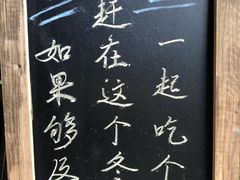 如果够及
赶在这个冬
一起吃个